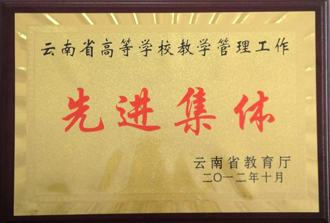 云南省高等学校教学管理工作
先进集体
云南省教育厅
二〇一二年十月